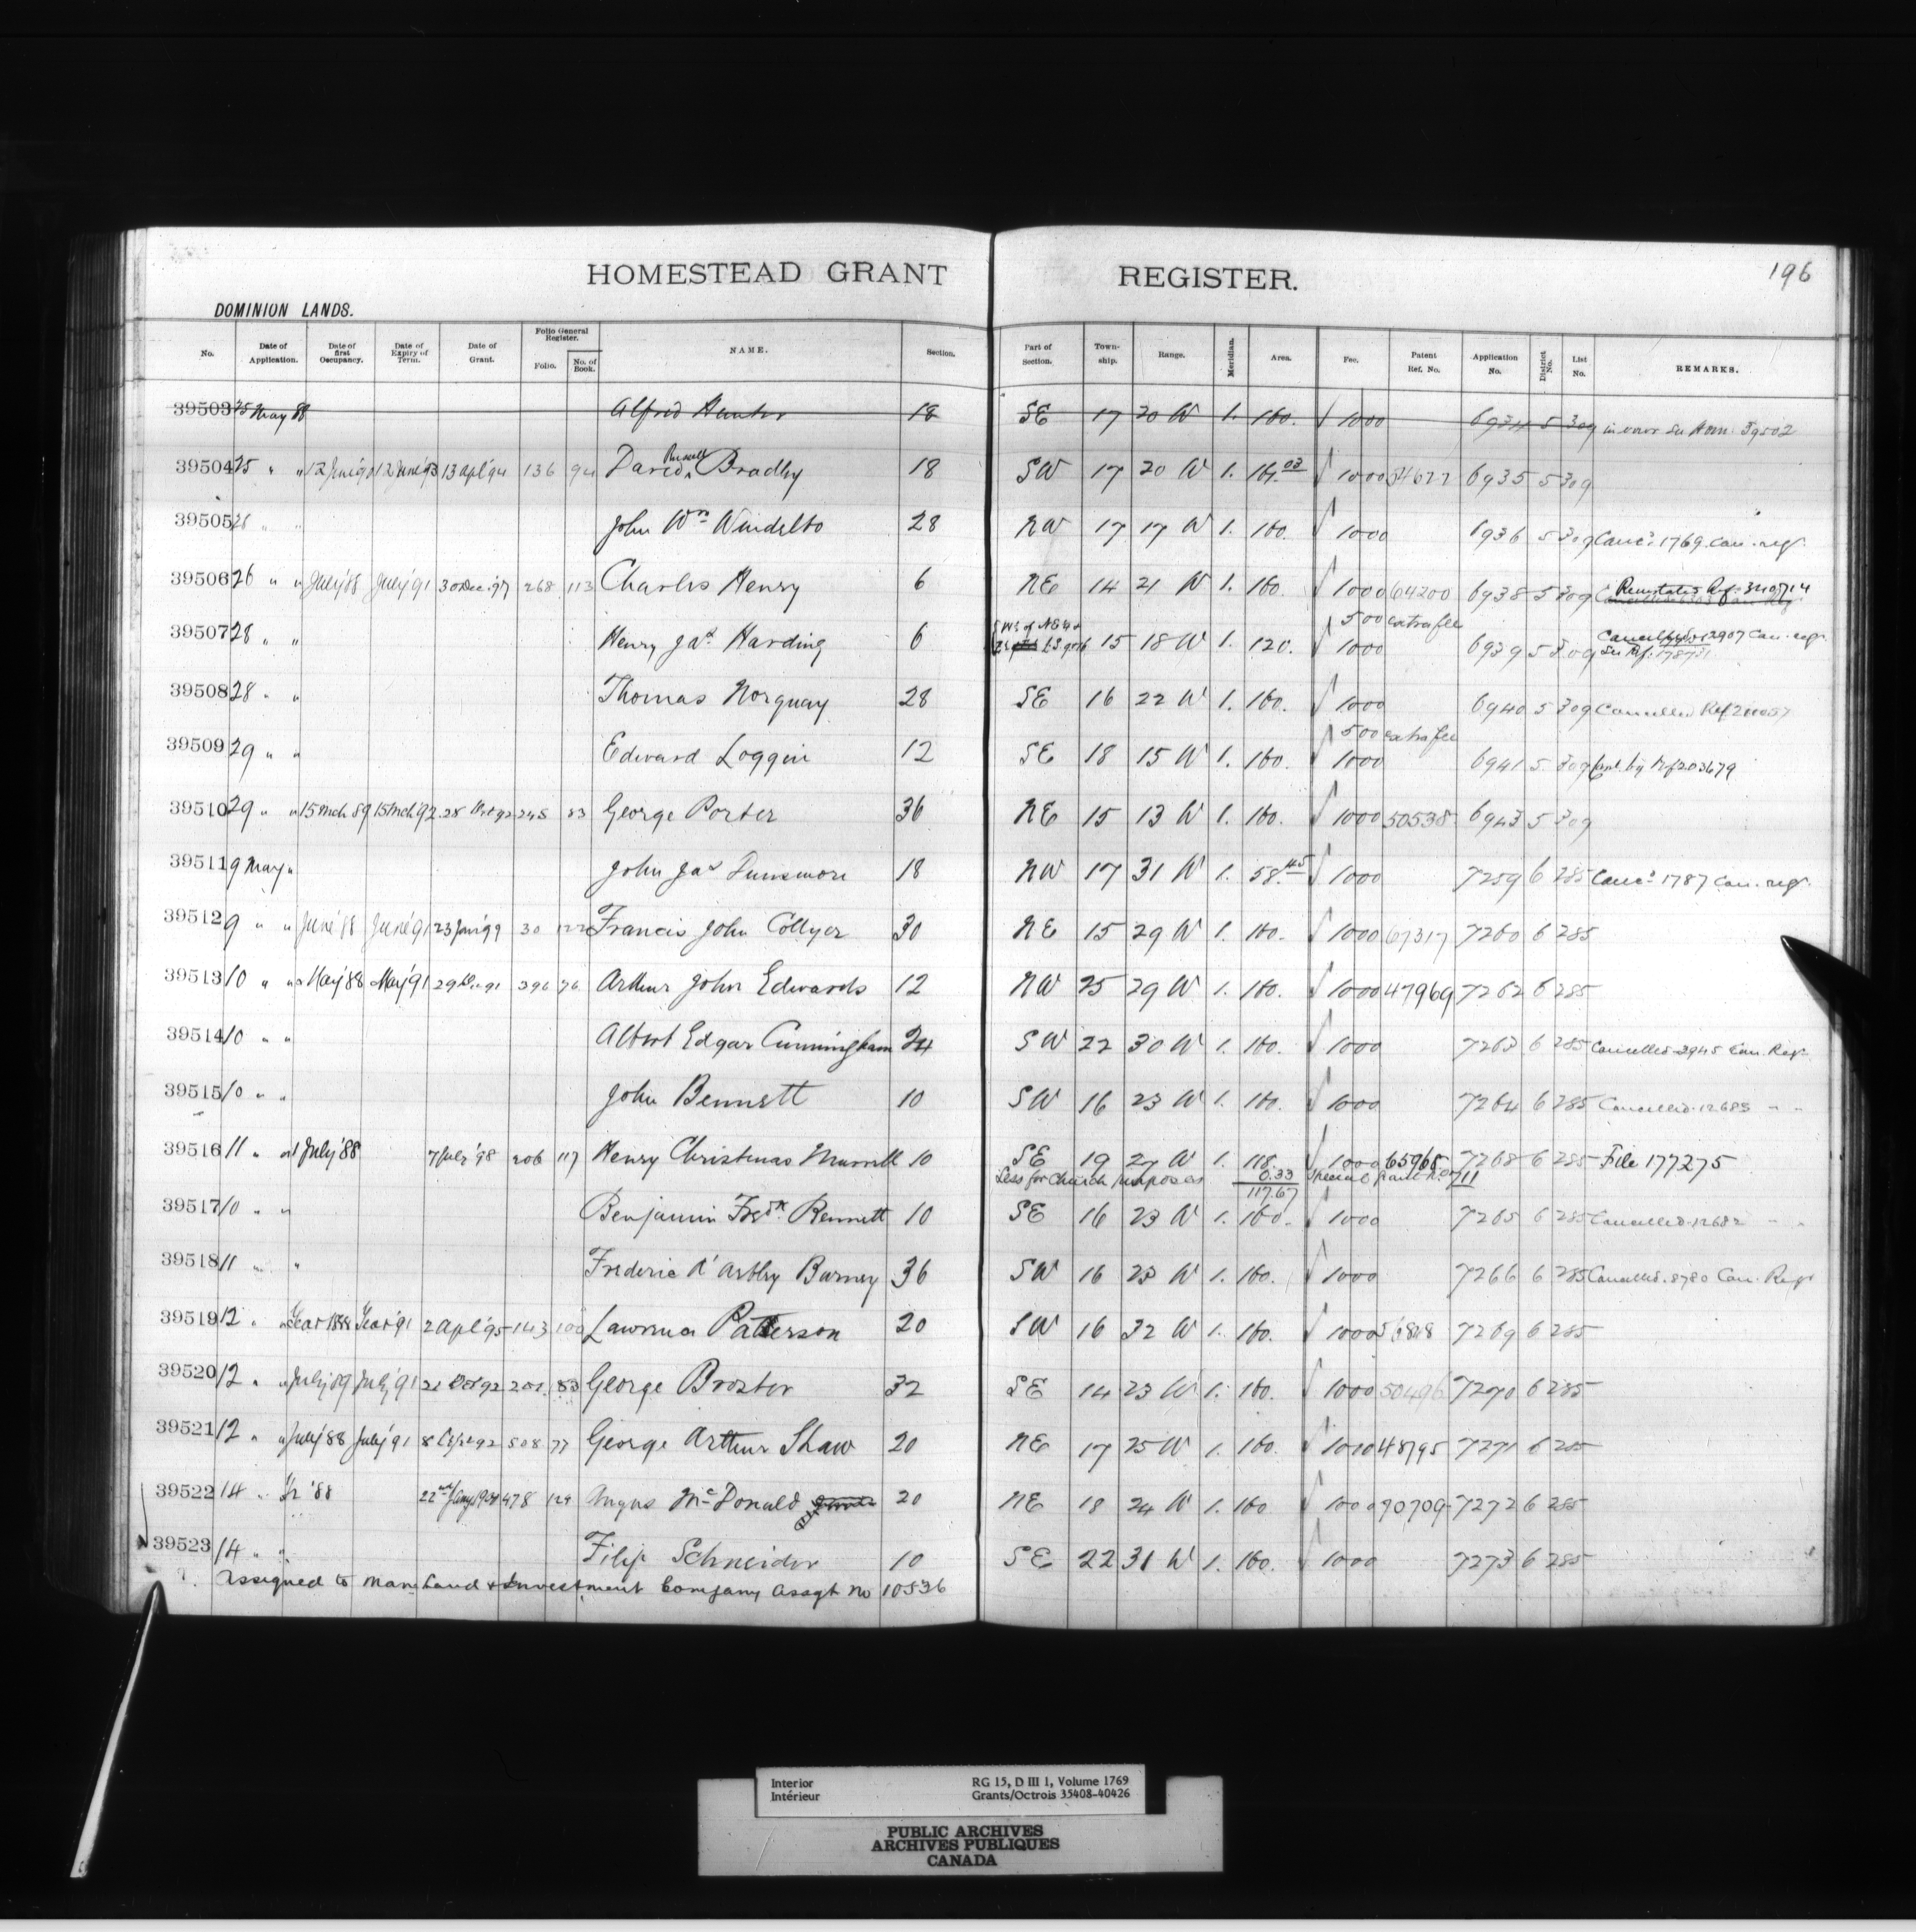 HOMESTEAD GRANT REGISTER. 196
DOMINION LANDS.
No. Date of Application. Date of first Occupancy. Date of Expiry of Term. Date of Grant. Folio General Register. Folio. No. of Book. NAME. Section. Part of Section. Town-ship. Range. Meridian. Area. Fee. Patent Ref. No. Application No. District No. List No. REMARKS.
39503 25 May 88 Alfred Hunter 18 SE 17 20 W 1. 160. 1000 6934 5 309 in error See Hom. 39502
39504 25 " " 12 June 90 12 June 93 13 Apl '94 136 94 David Russell Bradley 18 SW 17 20 W 1. 161.03 1000 54677 6935 5 309
39505 26 " " John Wm 28 NW 17 17 W 1. 160. 1000 6936 5 309 Canc'd 1769 Can. reg.
39506 26 " " July '88 July '91 30 Dec. '97 268 113 Charles Henry 6 NE 14 21 W 1. 160. 1000 64200 6938 5 309 Reinstated Ref. 340714
500 extra fee
39507 28 " " Henry Jas Harding 6 15 18 W 1. 120. 1000 6939 5 309 Cancelled 2907 Can. regr.
See Rf. 178731
39508 28 " " Thomas Norquay 28 SE 16 22 W 1. 160. 1000 6940 5 309 Cancelled Ref 211057
500 extra fee
39509 29 " " Edward Loggin 12 SE 18 15 W 1. 160. 1000 6941 5 309 Canl. by Rf 203679
39510 29 " " 15 Mch 89 15 Mch 92 28 92 245 83 George Porter 36 NE 15 13 W 1. 160. 1000 50538 6943 5 309
39511 9 May " John Jas Dunsmore 18 NW 17 31 W 1. 58.45 1000 7259 6 285 Canc'd 1787 Can. regr.
39512 9 " " June '88 June '91 23 Jan '99 30 122 Francis John Collyer 30 NE 15 29 W 1. 160. 1000 67317 7260 6 285
39513 10 " " May '88 May '91 29 Dec 91 396 76 Arthur John Edwards 12 NW 25 29 W 1. 160. 1000 47969 7262 6 285
39514 10 " " Albert Edgar Cunningham 24 SW 22 30 W 1. 160. 1000 7263 6 285 Cancelled 3945 Can. Regr.
39515 10 " " John Bennett 10 SW 16 23 W 1. 160. 1000 7264 6 285 Cancelled 12683 " "
39516 11 " " 1 July '88 7 July '98 206 117 Henry Christmas Murrell 10 SE 19 27 W 1. 118. 1000 65968 7268 6 285 File 177275
Less for Church purposes 0.33 Special Grant No 711
117.67
39517 10 " " Benjamin Fredk Bennett 10 SE 16 23 W 1. 160. 1000 7265 6 285 Cancelled 12682 " "
39518 11 " " Frederic d'Astley Burney 36 SW 16 23 W 1. 160. 1000 7266 6 285 Cancelled 8780 Can. Regr
39519 12 " " Year 1888 Year '91 2 Apl '95 143 100 Lawrence Patterson 20 SW 16 32 W 1. 160. 1000 7269 6 285
39520 12 " " July '89 July '91 21 Oct 92 201 83 George Broster 32 SE 14 23 W 1. 160. 1000 50496 7270 6 285
39521 12 " " July '88 July '91 8 92 508 77 George Arthur Shaw 20 NE 17 25 W 1. 160. 1010 48795 7271 6 285
39522 14 " Yr '88 22nd Jany 1904 478 129 Angus McDonald 20 NE 18 24 W 1. 160. 1000 90709 7272 6 285
39523 14 " " Filip Schneider 10 SE 22 31 W 1. 160. 1000 7273 6 285
Assigned to Man. Land & Investment Company Assgt No 10536
Interior RG 15, D III 1, Volume 1769
Intérieur Grants/Octrois 35408-40426
PUBLIC ARCHIVES
ARCHIVES PUBLIQUES
CANADA